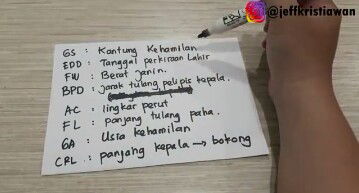 @jeffkristiawan
GS : Kantung Kehamilan
EDD : Tanggal perkiraan Lahir
FW : Berat janin.
BPD : jarak tulang pelipis kepala.
AC : lingkar perut
FL : panjang tulang paha.
GA : Usia kehamilan
CRL : panjang kepala → bokong